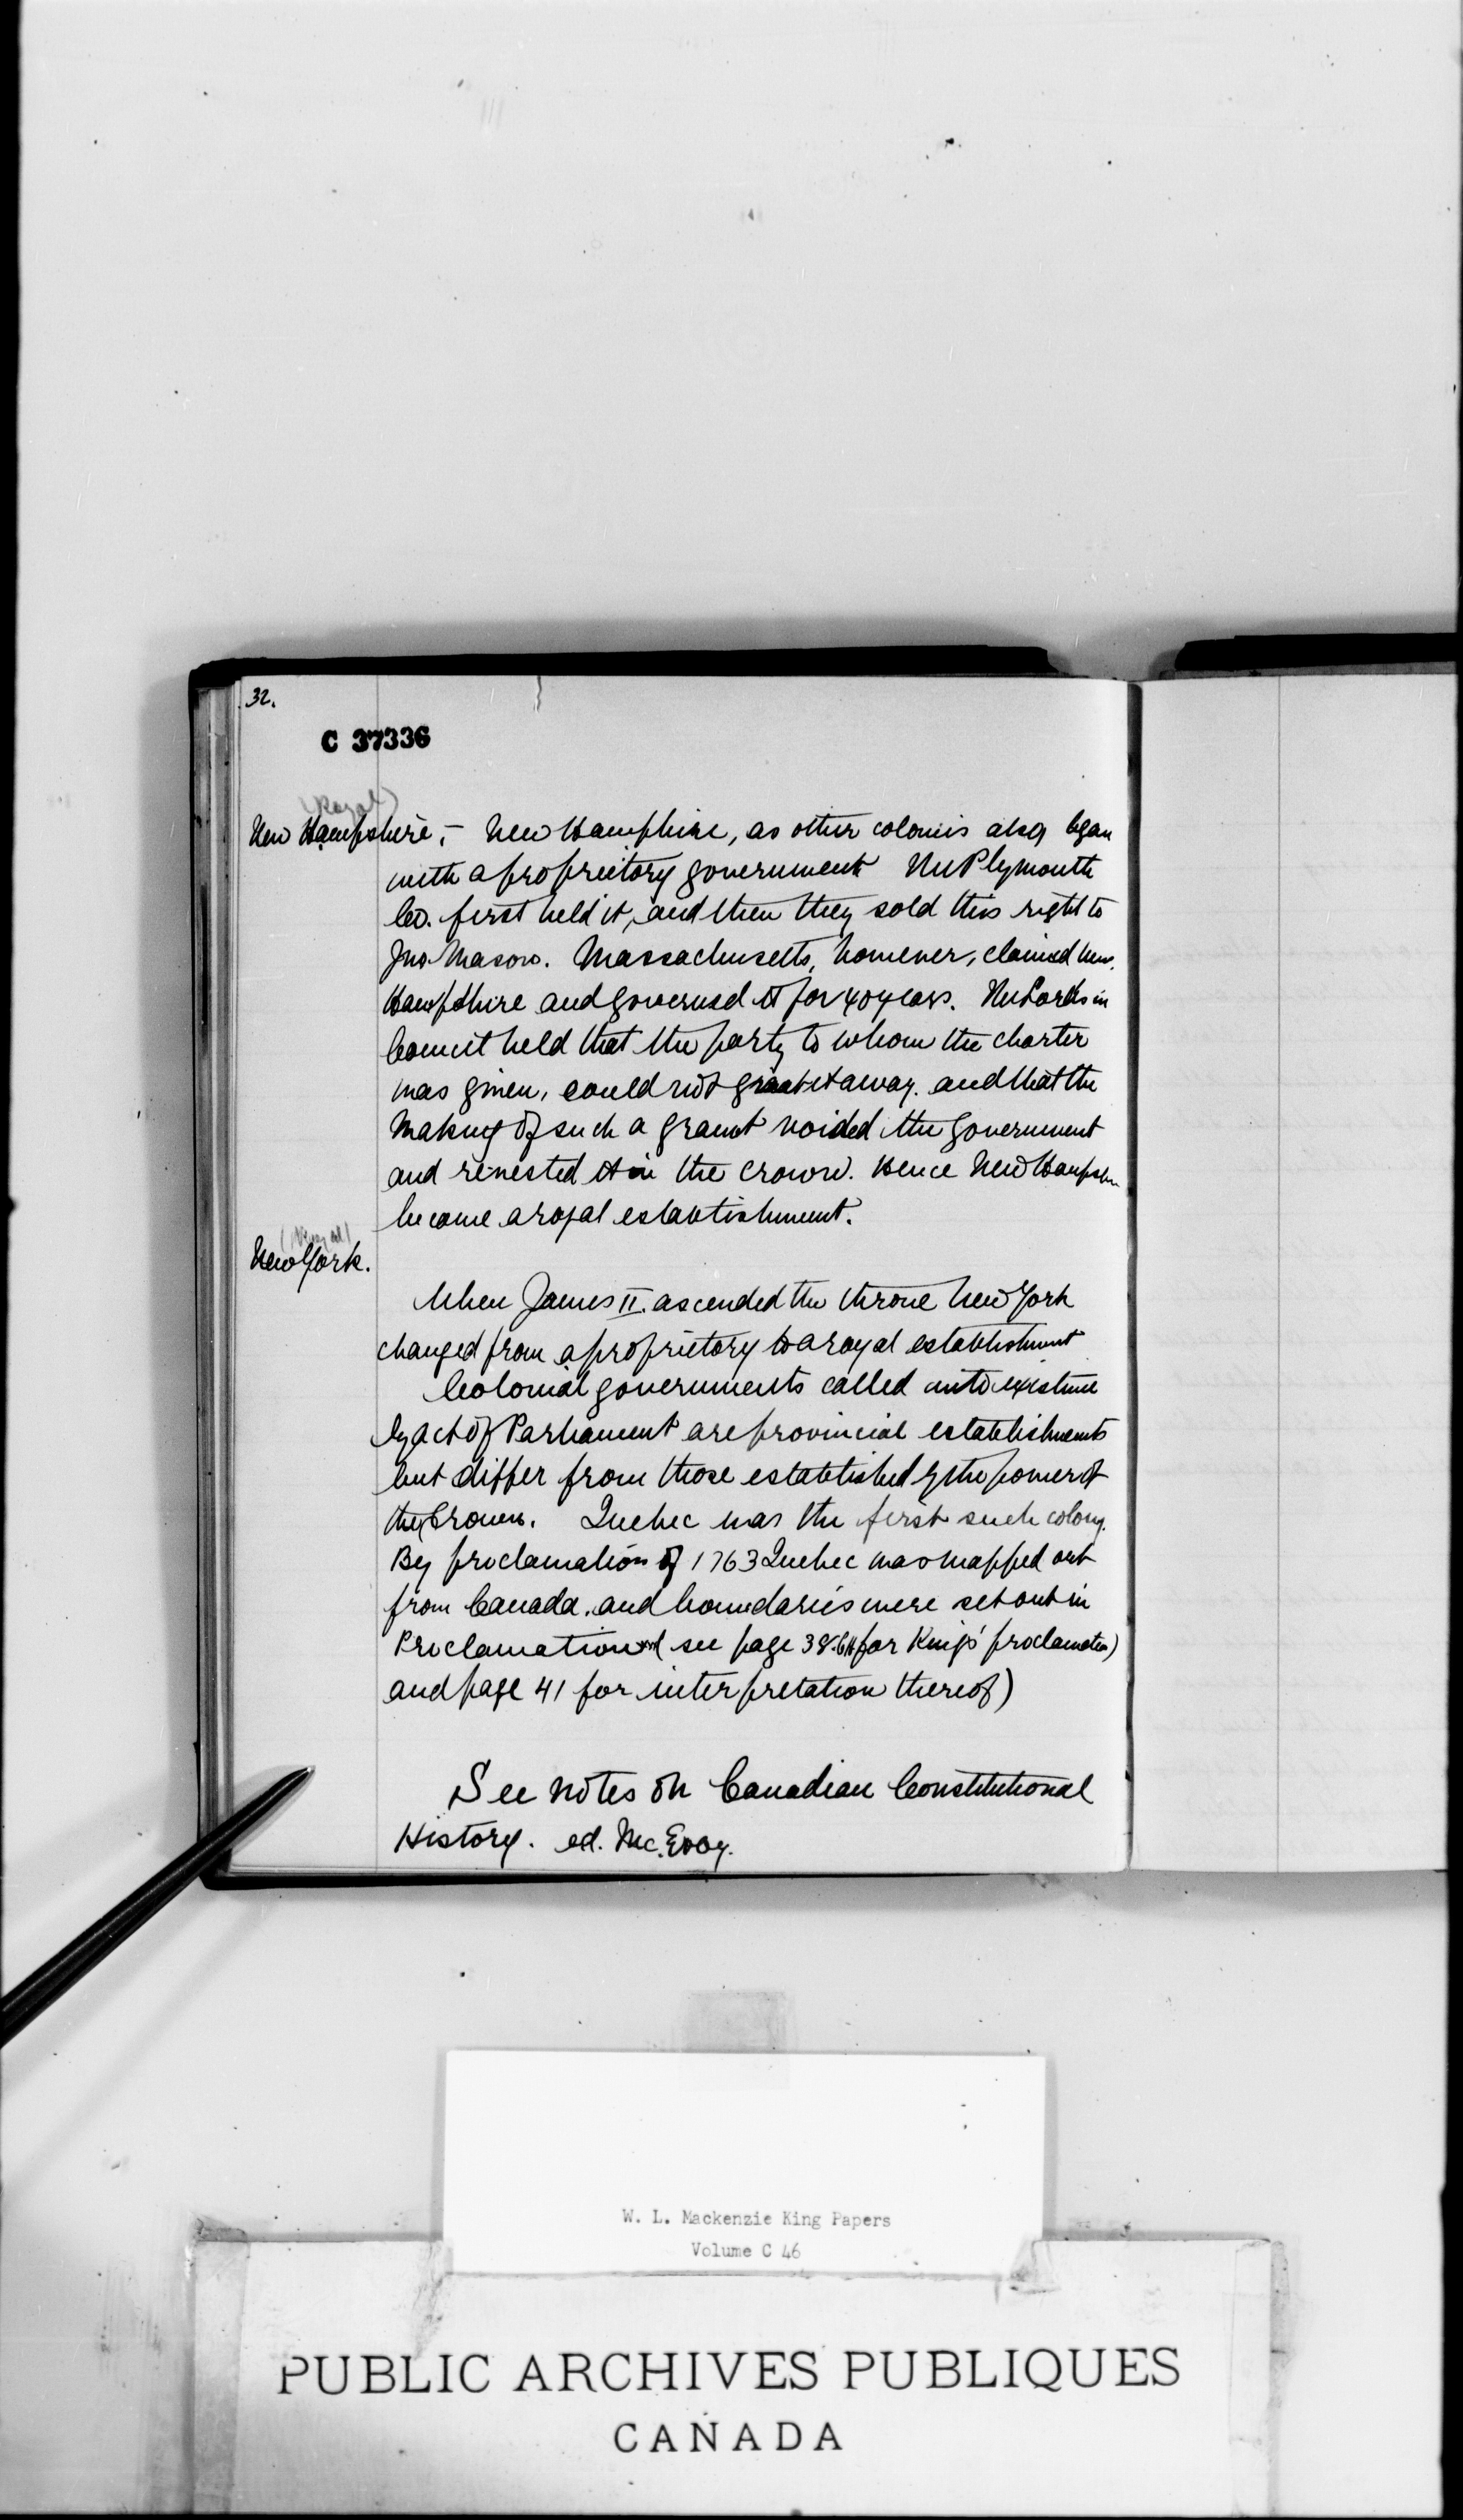 32.
C 37336
(Royal)
New Hampshire,- New Hampshire, as other colonies also, began
with a proprietory government The Plymouth
Co. first held it, and then they sold this right to
Jno Mason. Massachusetts, however, claimed New
Hampshire and governed it for 40 years. The Lords in
Council held that the party to whom the charter
was given, could not grant it away. and that the
making of such a grant voided the government
and revested it in the crown. Hence New Hampshire
became a royal establishment.
(Royal)
New York.
When James II. ascended the throne New York
changed from a proprietory to a royal establishment
Colonial governments called into existence
by act of Parliament are provincial establishments
but differ from those established by the power of
the Crown. Quebec was the first such colony.
By proclamation of 1763 Quebec was mapped out
from Canada. and boundaries were set out in
Proclamation (see page 38. for King's proclamation)
and page 41 for interpretation thereof)
See notes on Canadian Constitutional
History. ed. Mc.Evoy.
W. L. Mackenzie King Papers
Volume C 46
PUBLIC ARCHIVES PUBLIQUES
CANADA